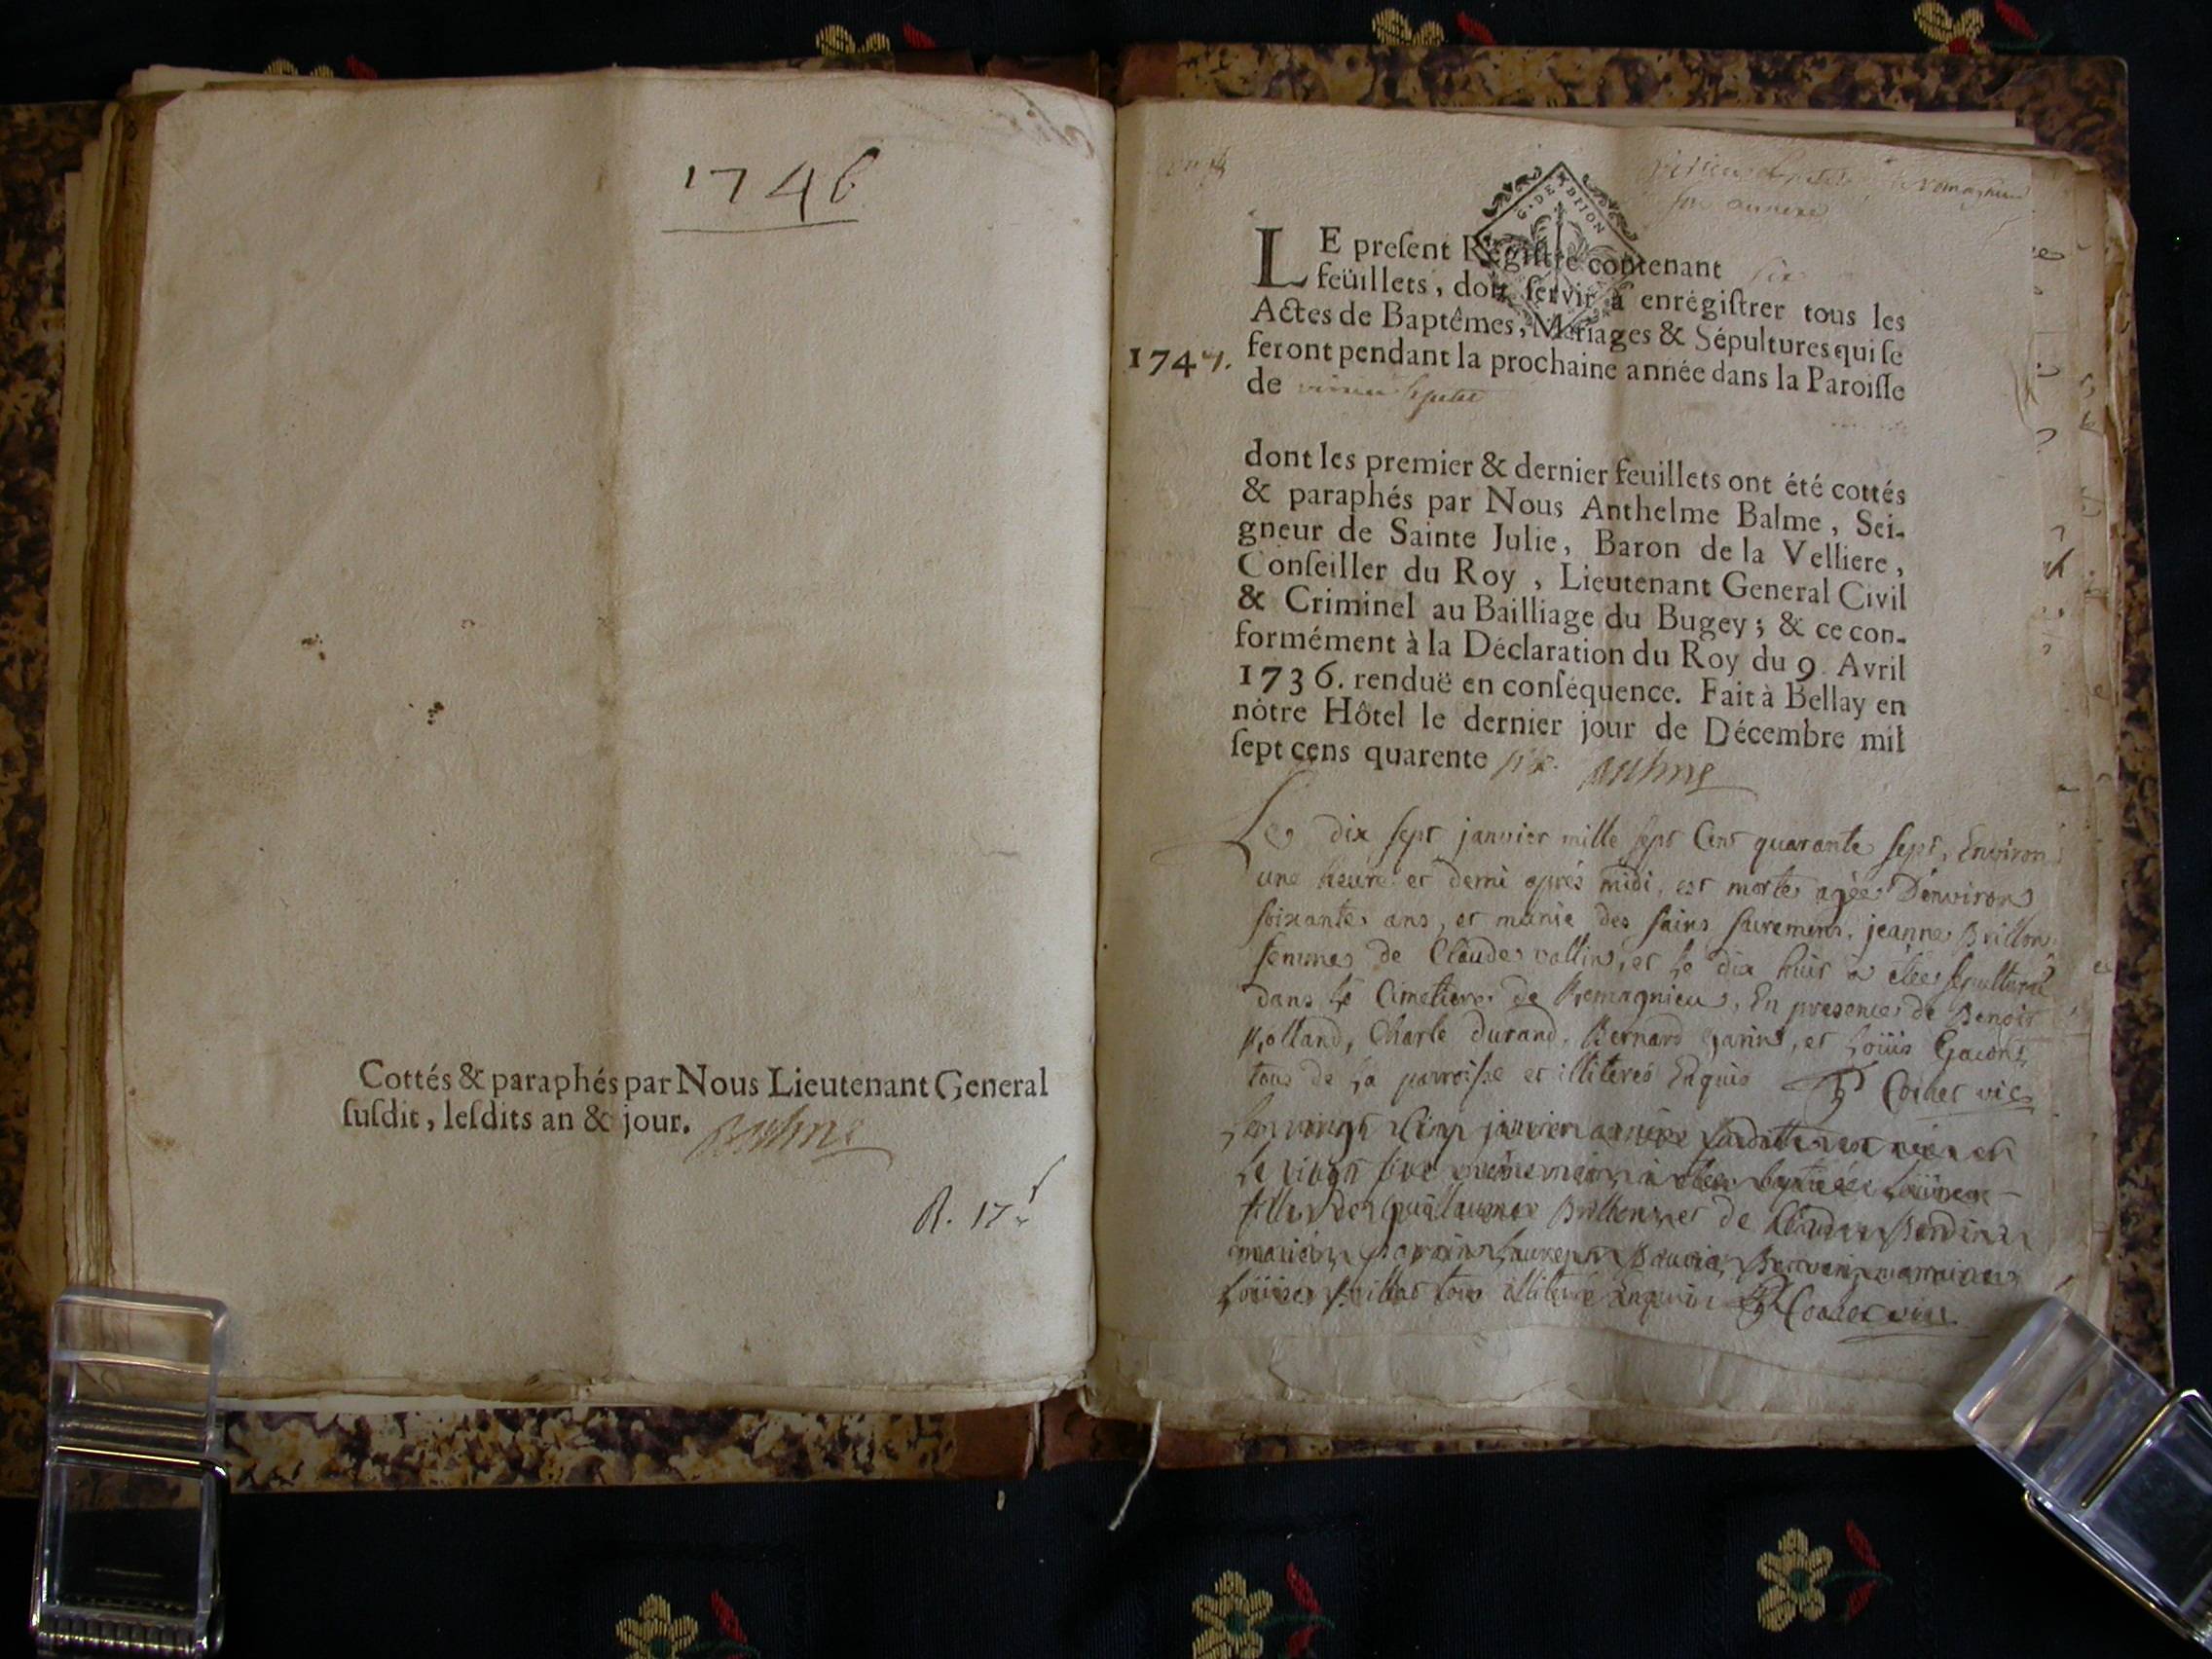 1746
Cottés & paraphés par Nous Lieutenant General
susdit, lesdits an & jour. Balme
R. 17
G. DE DIJON
son annexe
LE present Régistre contenant six
feüillets, doit servir à enrégistrer tous les
Actes de Baptêmes, Mariages & Sépultures qui se
1747. feront pendant la prochaine année dans la Paroisse
de
dont les premier & dernier feuillets ont été cottés
& paraphés par Nous Anthelme Balme, Sei-
gneur de Sainte Julie, Baron de la Velliere,
Conseiller du Roy, Lieutenant General Civil
& Criminel au Bailliage du Bugey; & ce con-
formément à la Déclaration du Roy du 9. Avril
1736. renduë en conséquence. Fait à Bellay en
nôtre Hôtel le dernier jour de Décembre mil
sept cens quarente six. Balme
Le dix sept janvier mille sept cent quarante sept, Environ
une heure et demi aprés midi, est morte agée D'environ
soixante ans, et munie des saints sacremens, jeanne Brillon
femme de Claude vallin, et le dix huit a étée sepulturé
dans le Cimetiere de Romagnieu, En presence de Benoit
Rolland, Charle Durand, Bernard garin, et Loüis
tous de la parroisse et illiterés Enquis Cornet vic
Le vingt cinq janvier année est née et
le vingt six a étée Loüise
fille de guillaume Brillon, et de Claudine
mariés,
Loüise tous illiterés Enquis Cornet vic